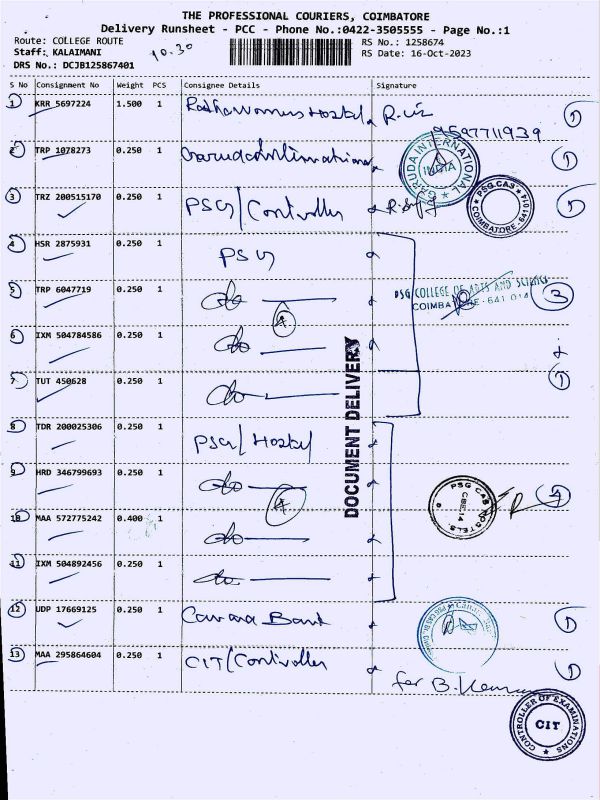 THE PROFESSIONAL COURIERS, COIMBATORE
Delivery Runsheet - PCC - Phone No.:0422-3505555 - Page No.:1
Route: COLLEGE ROUTE
RS No.: 1258674
Staff: KALAIMANI
10.30
RS Date: 16-Oct-2023
DRS No.: DCJB125867401
S No Consignment No Weight PCS Consignee Details Signature
1 KRR 5697224 1.500 1 Hostel 1
9597711939
2 TRP 1078273 0.250 1 1
GARUDA INTERNATIONAL
INDIA
3 TRZ 200515170 0.250 1 PSG/Controller 1
PSG CAS
COIMBATORE-641 014
4 HSR 2875931 0.250 1 PSG
5 TRP 6047719 0.250 1 do 3
PSG COLLEGE OF ARTS AND SCIENCE
COIMBATORE-641 014
4
6 IXM 504784586 0.250 1 do
7 TUT 450628 0.250 1 do 1
DOCUMENT DELIVERY
8 TDR 200025306 0.250 1 PSG/Hostel
9 HRD 346799693 0.250 1 do 4
4
PSG CAS HOSTELS
CBE.14
10 MAA 572775242 0.400 1 do
11 IXM 504892456 0.250 1 do
12 UDP 17669125 0.250 1 Canara Bank 1
13 MAA 295864604 0.250 1 CIT/Controller 1
for B.
CONTROLLER OF EXAMINATIONS
CIT